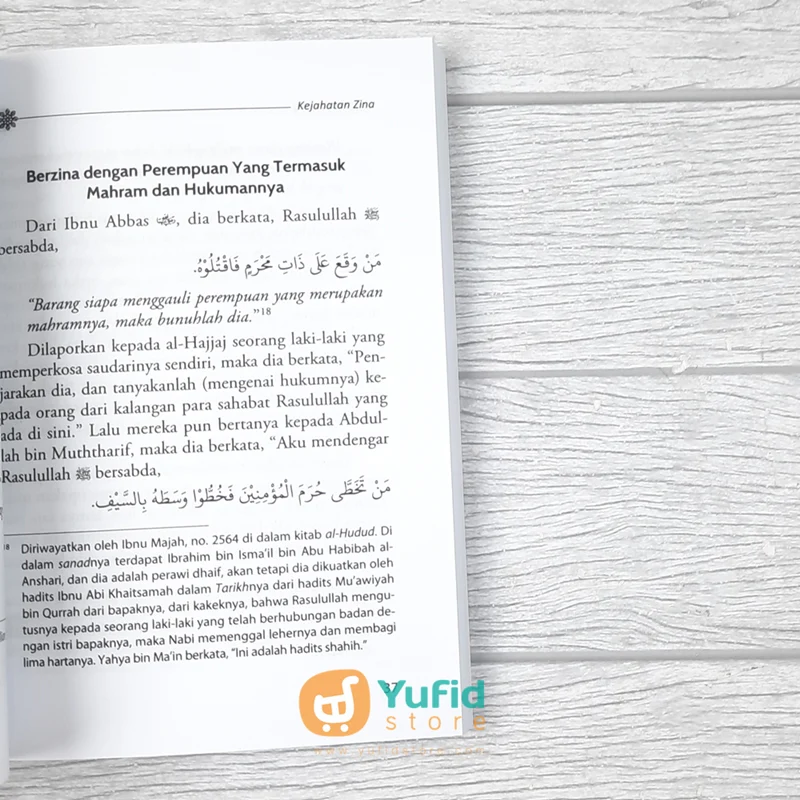 Kejahatan Zina
Berzina dengan Perempuan Yang Termasuk
Mahram dan Hukumannya
Dari Ibnu Abbas, dia berkata, Rasulullah ﷺ
bersabda,
مَنْ وَقَعَ عَلَى ذَاتِ مَحْرَمٍ فَاقْتُلُوْهُ.
“Barang siapa menggauli perempuan yang merupakan
mahramnya, maka bunuhlah dia.”18
Dilaporkan kepada al-Hajjaj seorang laki-laki yang
memperkosa saudarinya sendiri, maka dia berkata, “Pen-
jarakan dia, dan tanyakanlah (mengenai hukumnya) ke-
pada orang dari kalangan para sahabat Rasulullah yang
ada di sini.” Lalu mereka pun bertanya kepada Abdul-
lah bin Muththarif, maka dia berkata, “Aku mendengar
Rasulullah ﷺ bersabda,
مَنْ تَخَطَّى حُرَمَ الْمُؤْمِنِيْنَ فَخُطُّوْا وَسَطَهُ بِالسَّيْفِ.
18 Diriwayatkan oleh Ibnu Majah, no. 2564 di dalam kitab al-Hudud. Di
dalam sanadnya terdapat Ibrahim bin Isma'il bin Abu Habibah al-
Anshari, dan dia adalah perawi dhaif, akan tetapi dia dikuatkan oleh
hadits Ibnu Abi Khaitsamah dalam Tarikhnya dari hadits Mu'awiyah
bin Qurrah dari bapaknya, dari kakeknya, bahwa Rasulullah mengu-
tusnya kepada seorang laki-laki yang telah berhubungan badan de-
ngan istri bapaknya, maka Nabi memenggal lehernya dan membagi
lima hartanya. Yahya bin Ma'in berkata, “Ini adalah hadits shahih.”
37
Yufid
store
www.yufidstore.com